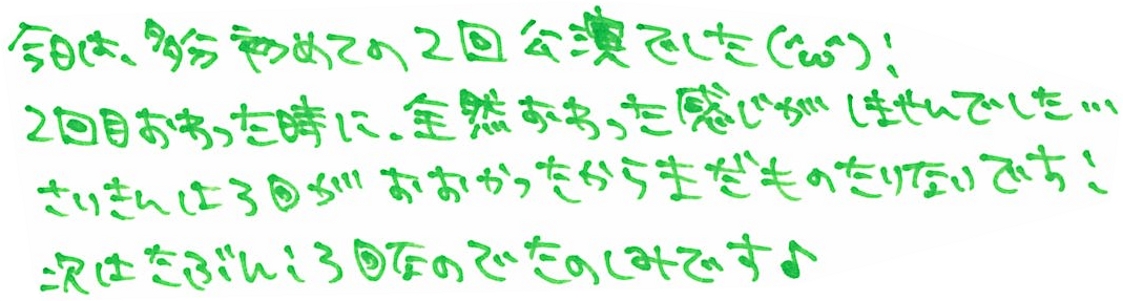 今日は、多分初めての2回公演でした(^ω^)!
2回目おわった時に、全然おわった感じがしませんでした…
さいきんは3回がおおかったからまだものたりないです!
次はたぶん3回なのでたのしみです♪